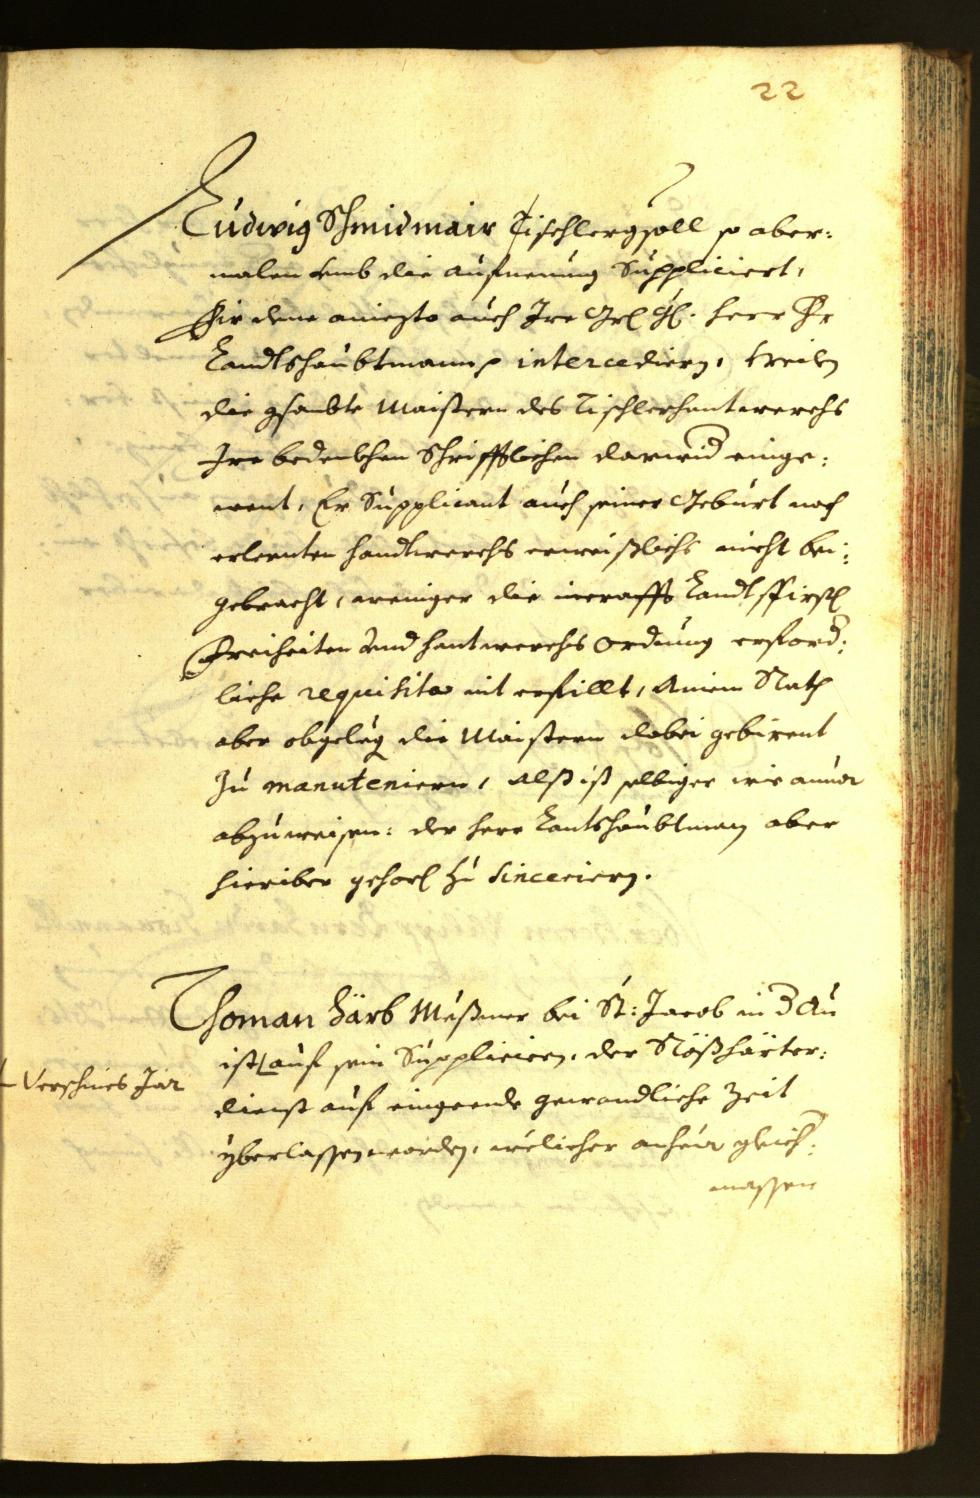 22
Ludwig Schmidmair Tischlergsoll so aber:
malen umb die aufnemung Suppliciert,
für dene aniezto auch Ire Grl: Gl: herr Hr
Landtshaubtmann intercediern, treilen
die gsambte Maistern des Tischlerhantwerchs
Ire bedenkhen Schrifftlichen darwid einge:
went, Er Supplicant auch seiner Geburt noch
erlernten handtwerchs erweißlichs nicht bei:
gebracht, weniger die Landtsfirstl
Freiheiten und hantwerchs Ordnung erford:
liche requisita nit erfillt, Ainem Rath
aber obgeleg die Maistern dabei gebirent
Zu manuteniern, Alß ist selbiger wie annor
abzuweisen: der herr Lantshaubtman aber
hieriber gehorl zu sincerirn.
Thoman Härb Meßmer bei St: Jacob in d Au
ist auf sein Supplicirn, der Roßhärter:
Verschines Jar
dienst auf eingeende gewondliche Zeit
yberlassen worden, welicher anheur gleich:
massen